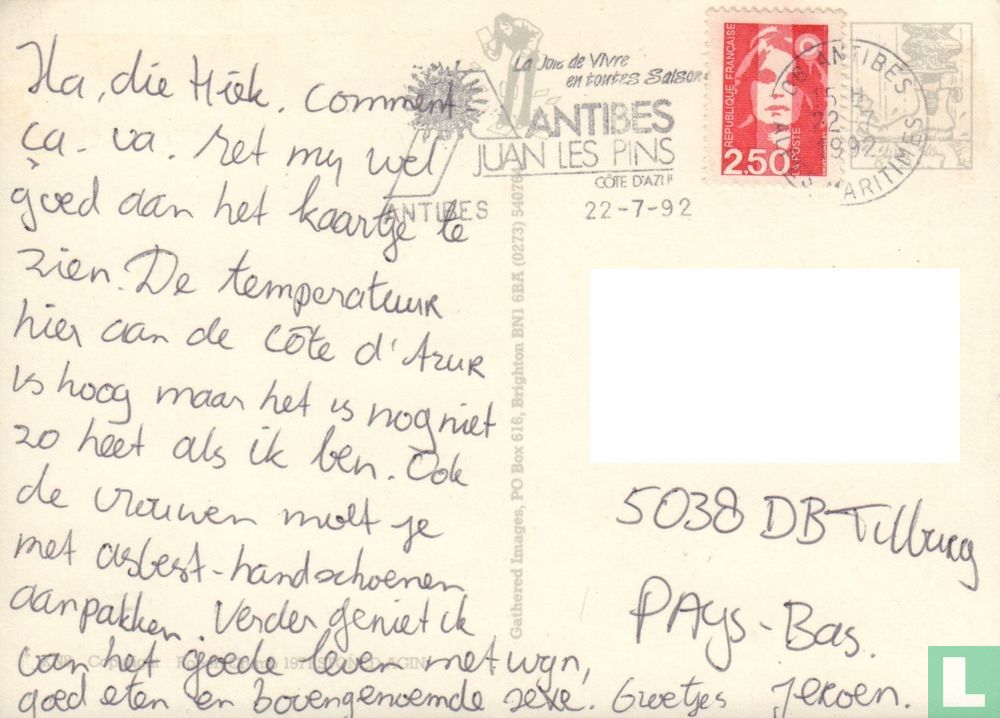 Ha, die Hiek. Comment
ça-va. Het my wel
goed aan het kaartje te
zien. De temperatuur
hier aan de côte d'Azur
is hoog maar het is nog niet
zo heet als ik ben. Ook
de vrouwen moet je
met asbest-handschoenen
aanpakken. Verder geniet ik
van het goede leven met wijn,
goed eten en bovengenoemde sexe. Groetjes Jeroen.
La Joie de Vivre
en toutes Saisons
ANTIBES
JUAN LES PINS
CÔTE D'AZUR
ANTIBES
22-7-92
REPUBLIQUE FRANÇAISE
LA POSTE
2.50
06 ANTIBES
22-7
1992
A. MARITIMES
Gathered Images, PO Box 616, Brighton BN1 6BA (0273) 540764
5038 DB Tilburg
PAys-Bas.
L